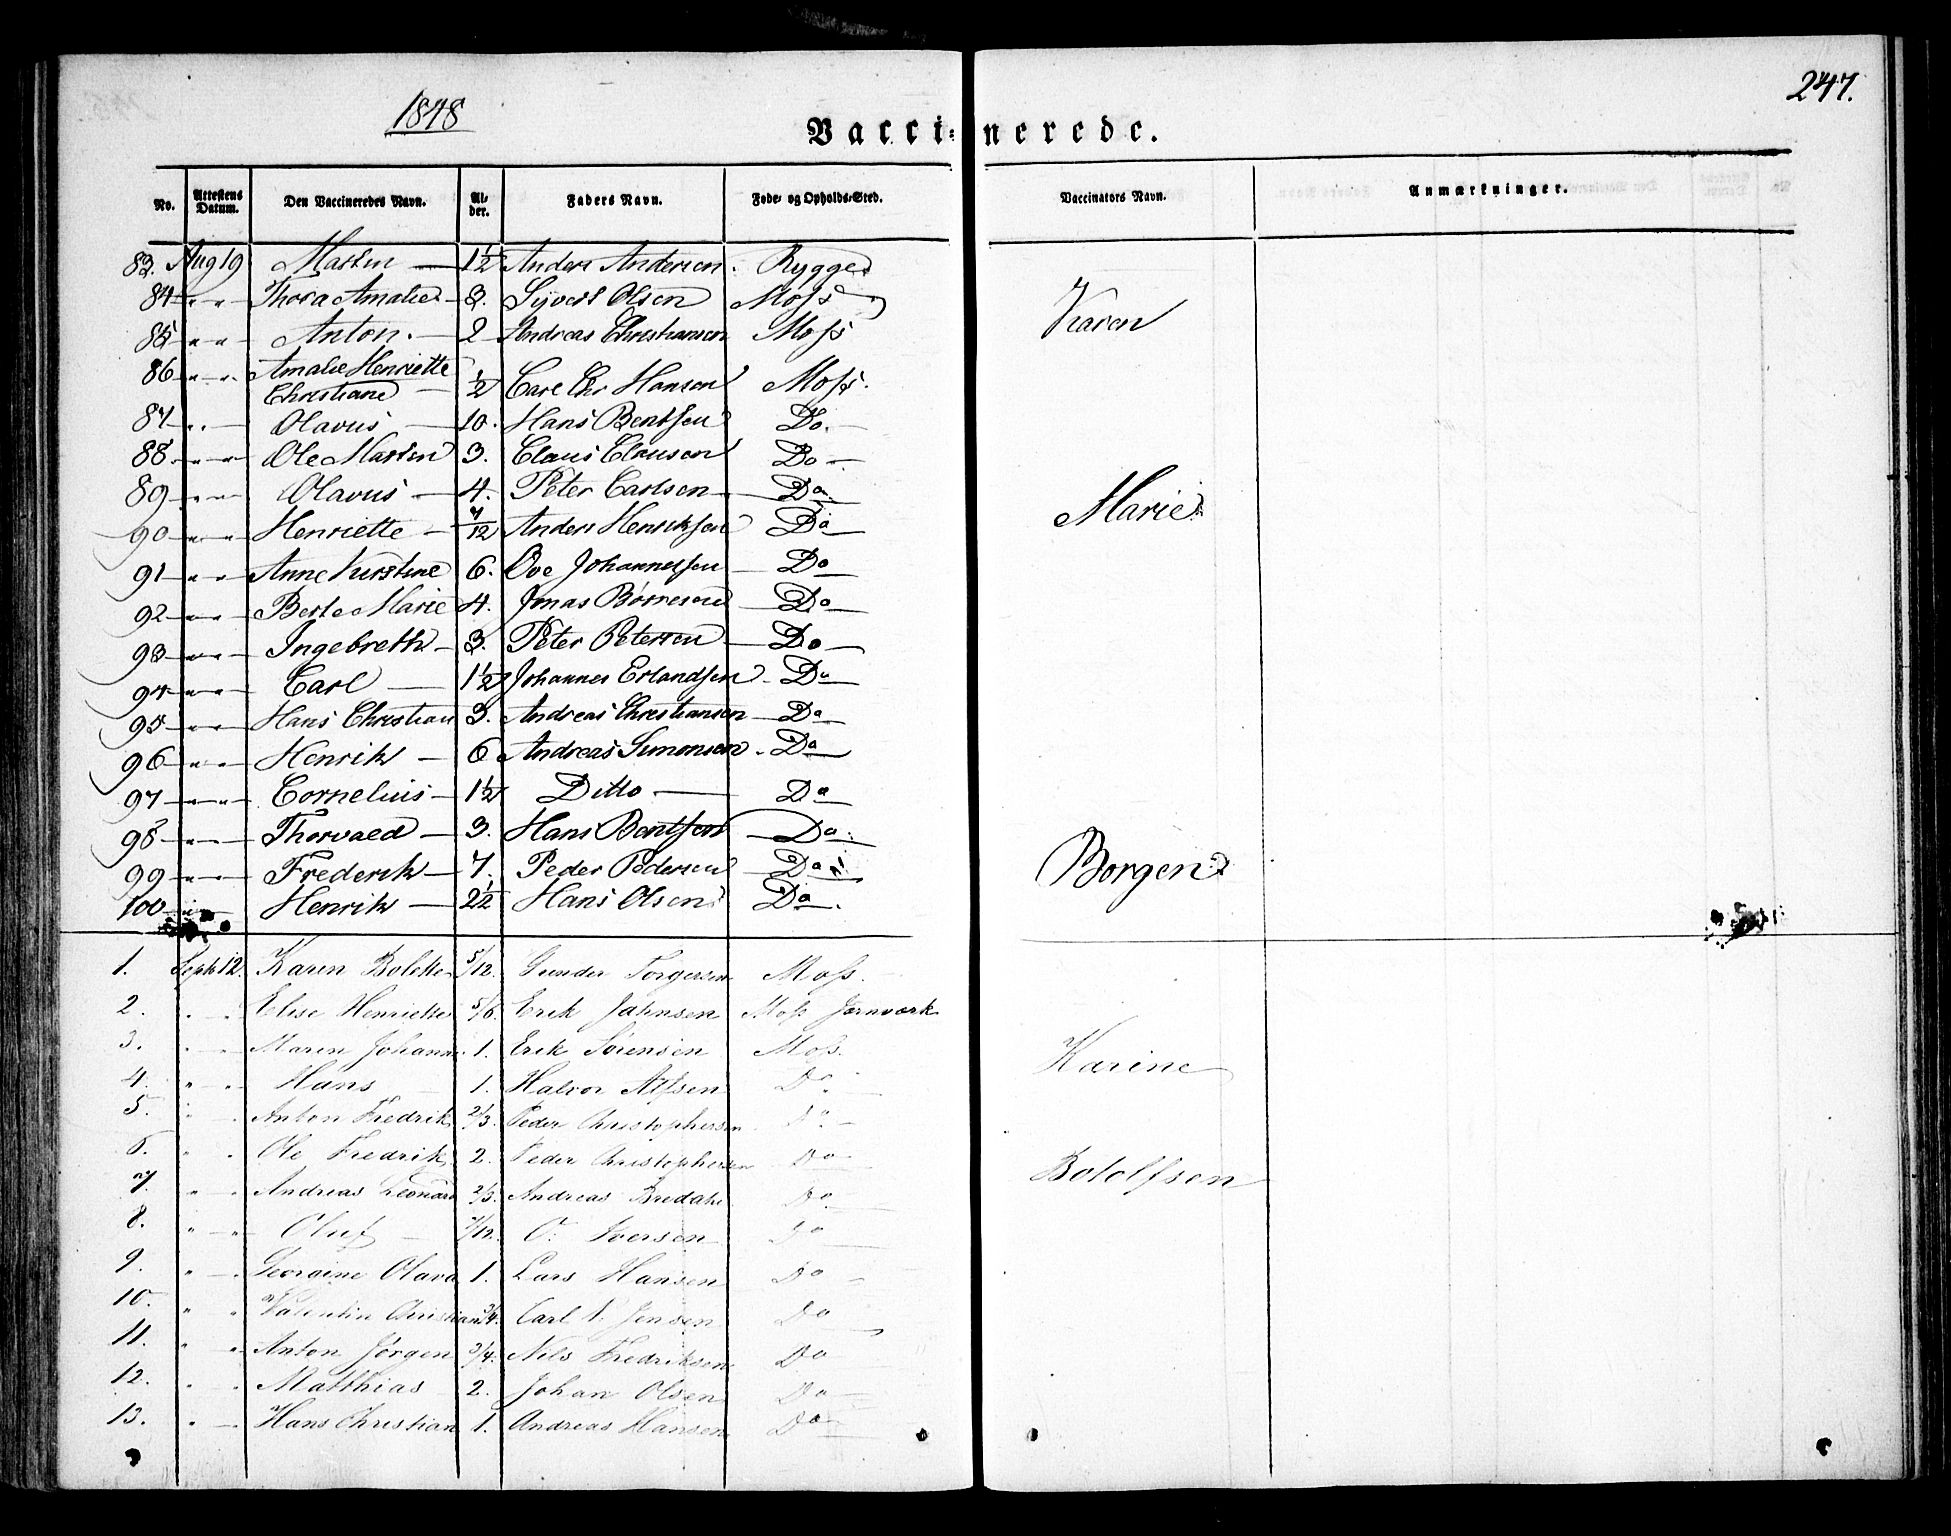 247.
1848
Vacci- nerede.
No. Attestens Datum. Den Vaccineredes Navn. Al- der. Faders Navn. Føde- og Opholds-Sted. Vaccinators Navn. Anmærkninger.
83. Aug 19 Martin 1½ Anders Andersen. Rygge
84 " " Thora Amalie 3. Syvert Olsen Moss
85 " " Anton. 2 Andreas Christiansen Moss
Karen
86 " " Amalie Henriette
Christiane ½ Carl Chr Hansen Moss.
87 " " Olavus 10. Hans Bentsen Do.
88. " " Ole Martin 3. Claus Clausen Do
89 " " Olavus 4. Peter Carlsen Do
Marie
90 " " Henriette 7/12 Anders Henriksen Do
91 " " Anne Kirstine 6. Ove Johannessen Do
92 " " Berte Marie 4. Jonas Børresen Do
93 " " Ingebreth 3. Peter Petersen Do
94 " " Carl 1½ Johannes Erlandsen Do
95 " " Hans Christian 3. Andreas Christiansen Do
96 " " Henrik 6 Andreas Simonsen Do
97 " " Cornelius 1½ Ditto Do
98 " " Thorvald 3. Hans Bentsen Do.
99 " " Frederik 7. Peder Pedersen Do
Borgen
100 " Henrik 2½ Hans Olsen Do.
1. Septb 12. Karen Bolette 5/12. Gunder Torgersen Moss.
2. " " Elise Henriette 5/6. Erik Jahnsen Moss Jernværk
3. " " Maren Johanne 1. Erik Sørensen Moss.
Karine
4. " " Hans 1. Halvor Alfsen Do
5. " " Anton Fredrik 2/3. Peder Christophersen Do
6. " " Ole Fredrik 2. Peder Christophersen Do
Botolfsen
7. " " Andreas Leonard 2/3. Andreas Bredahl Do.
8. " " Oluf 7/12. O. Iversen Do
9. " " Georgine Olava 1. Lars Hansen Do
10. " " Valentin Christian 3/4. Carl V. Jensen Do
11. " " Anton Jørgen 3/4. Nils Fredriksen Do
12. " " Matthias 2. Johan Olsen Do
13. " Hans Christian 1. Andreas Hansen Do